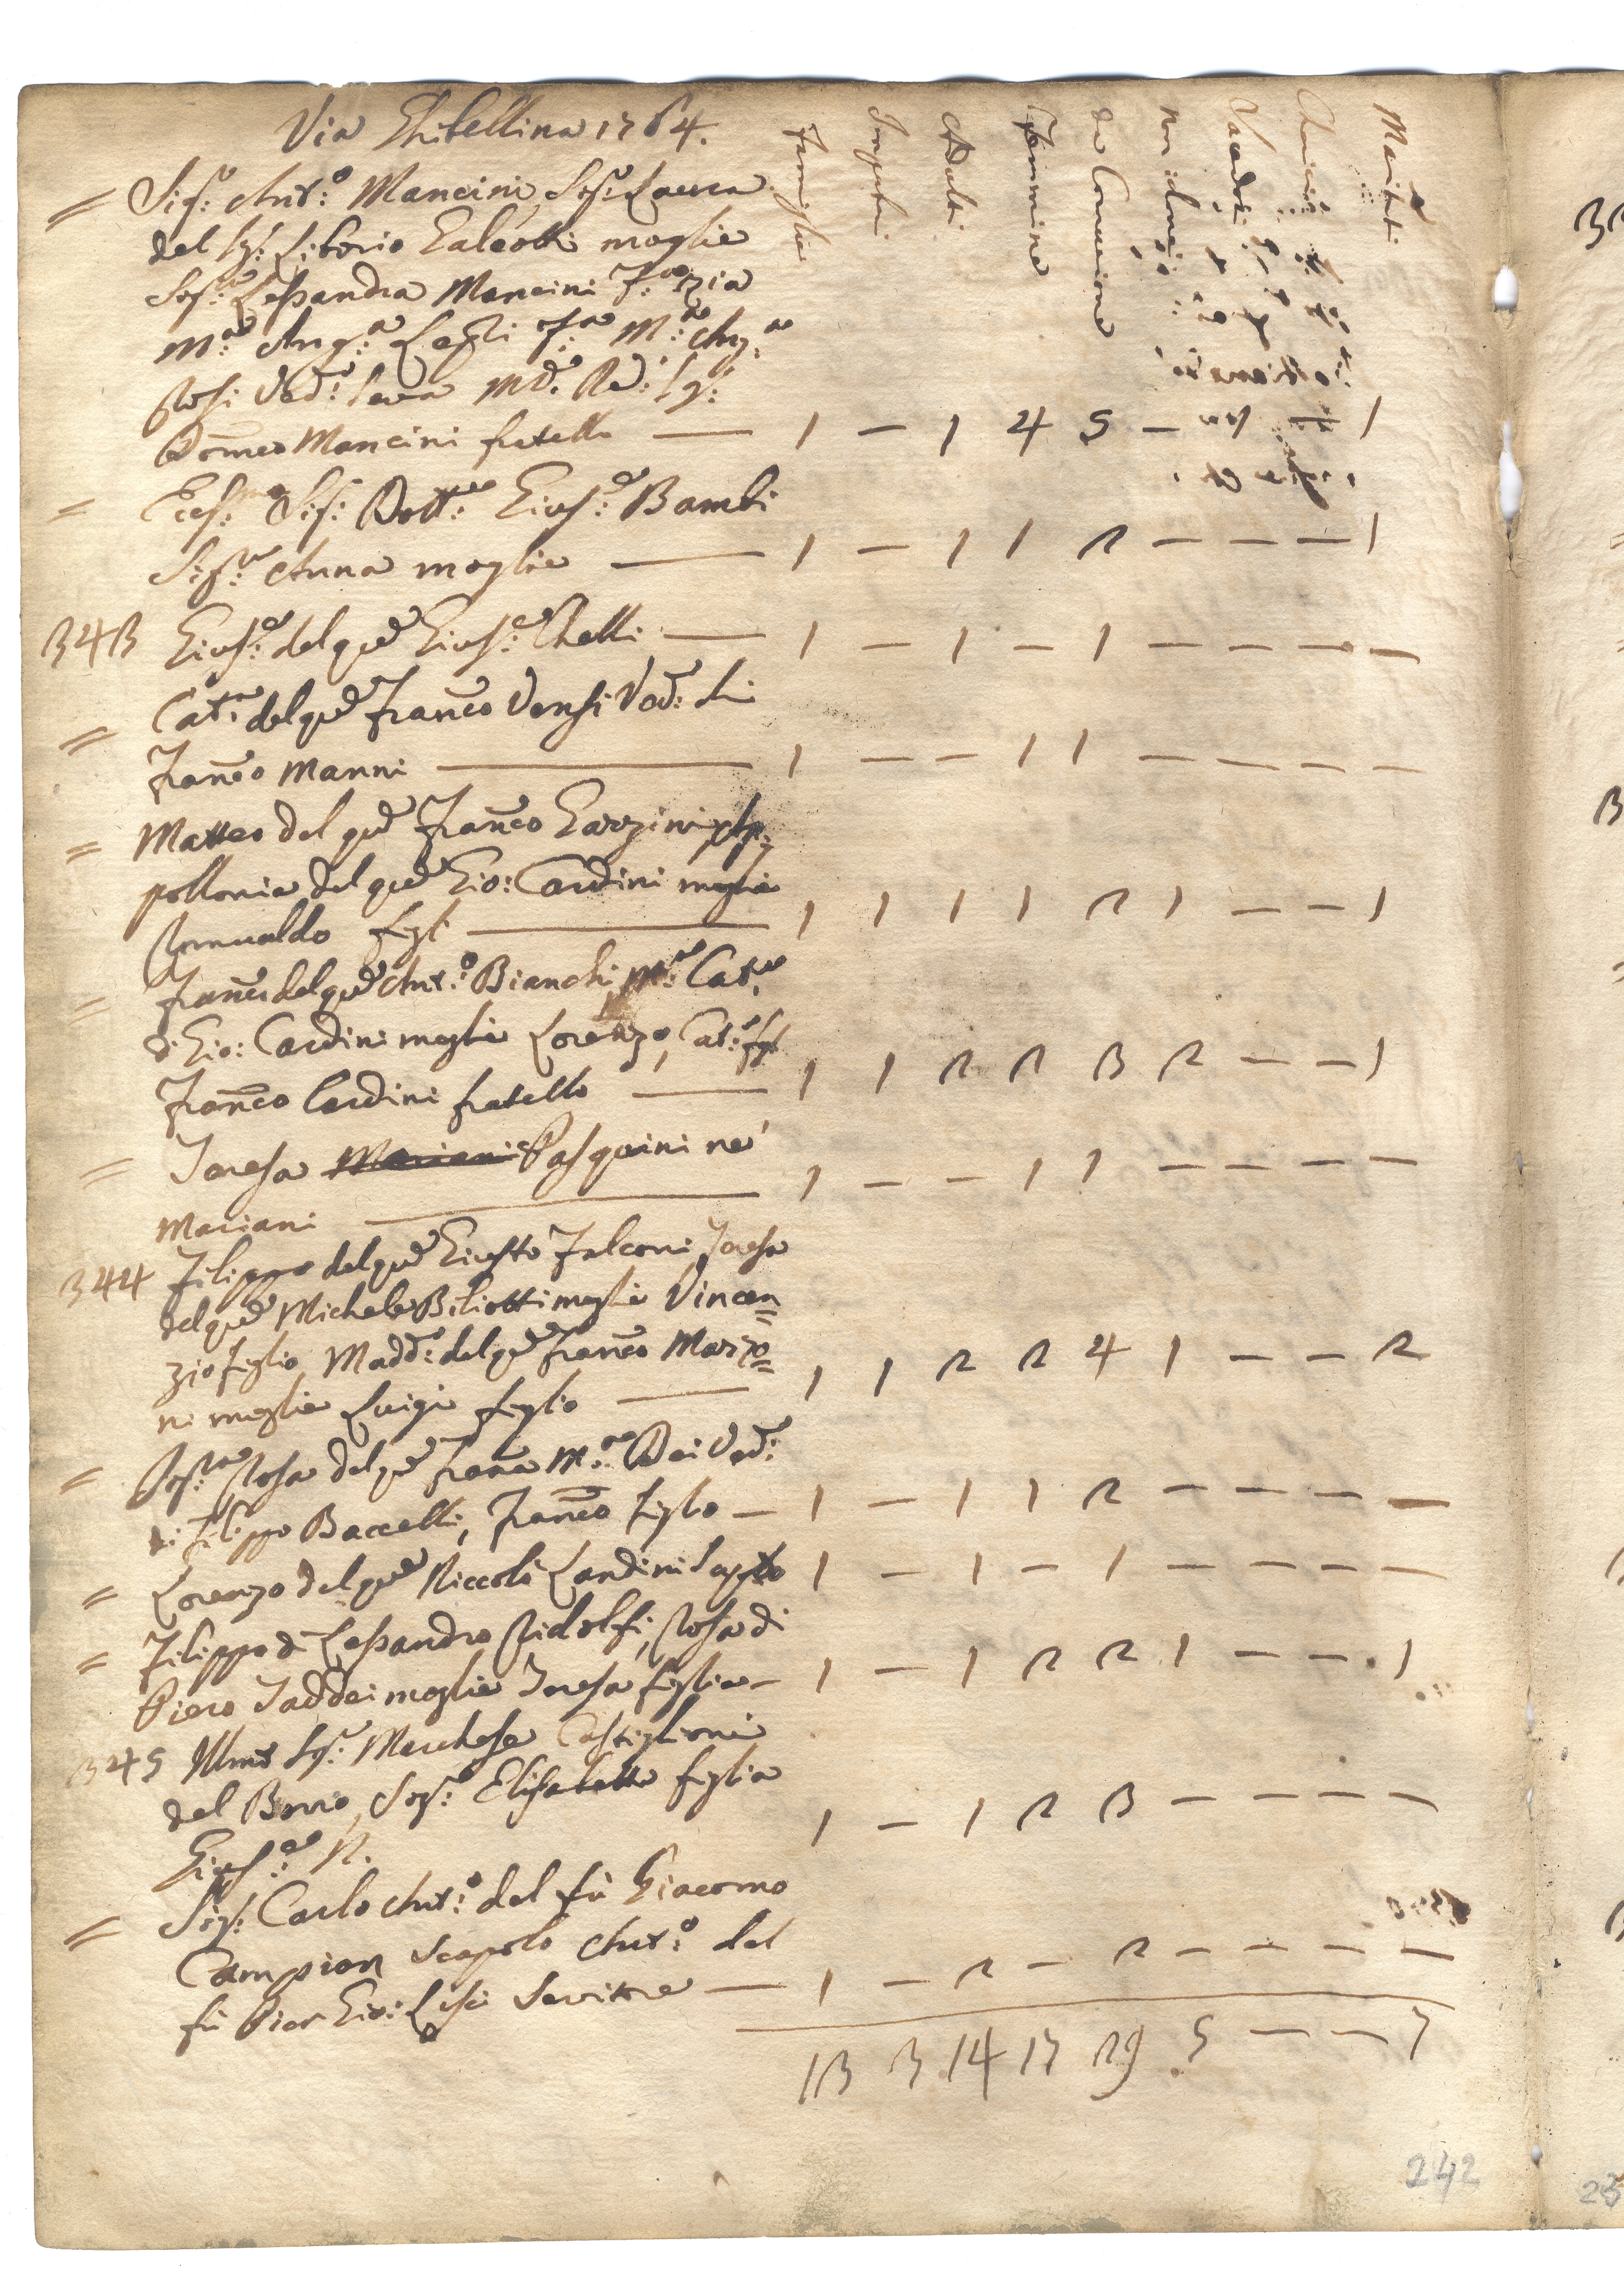 Via Ghibellina 1764.
Famiglie Inputi Adulti Femmine da Comunione Non idonei Maritati
= Sig:e Ant:o Mancini, Sig:a Laura
del Sg: Liborio Galeotti moglie
Sig:a Lessandra Mancini zia
M:a Ang:a M:a Ang:a
Rosi Ved:a Serva Sg:
Domco Mancini fratello — 1 — 1 4 5 — — 1
= Eccs:mo Sig: Dott:re Gius:e Bambi
Sig:ra Anna moglie — 1 — 1 1 2 — — — 1
343 Gius:e del qm Gius:e Chelli — 1 — 1 — 1 — — — —
= Cat:a del qm Franco Vensi Ved: di
Franco Manni — 1 — — 1 1 — — — —
= Matteo del qm Franco Garzini Ap:
pollonia del qm Gio: Cardini moglie
Romualdo figl — 1 1 1 1 2 1 — — 1
= Franco del qm Ant:o Bianchi, M:a Cat:a
di Gio: Cardini moglie Lorenzo, Cat:a figl
Franco Cardini fratello — 1 1 2 2 3 2 — — 1
= Teresa Mariani Pasquini ne'
Mariani — 1 — — 1 1 — — — —
344 Filippo del qm Giusto Falconi Teresa
del qm Michele Biliotti moglie Vincen=
zio figlio, Madd:a del qm Franco Marzo=
ni moglie Luigi figlio — 1 1 2 2 4 1 — — 2
= Sig:ra Rosa del qm Franco M:a Dei Ved:a
di Filippo Baccelli, Franco figlo — 1 — 1 1 2 — — — —
= Lorenzo del qm Niccolò Landini 1 — 1 — 1 — — — —
= Filippo di Lessandro Ridolfi, Rosa di
Piero Taddei moglie Teresa figlia — 1 — 1 2 2 1 — — 1
345 Illmo Sg:e Marchese Castiglioni
del Borro, Sig:a Elisabetta figlia
Gius:a N. 1 — 1 2 3 — — — —
= Sig: Carlo Ant:o del fù Giacomo
Campion Scapolo Ant:o del
fù Pier Gio: Lisci Servitore — 1 — 2 — 2 — — — —
13 3 14 17 29 5 — — 7
242